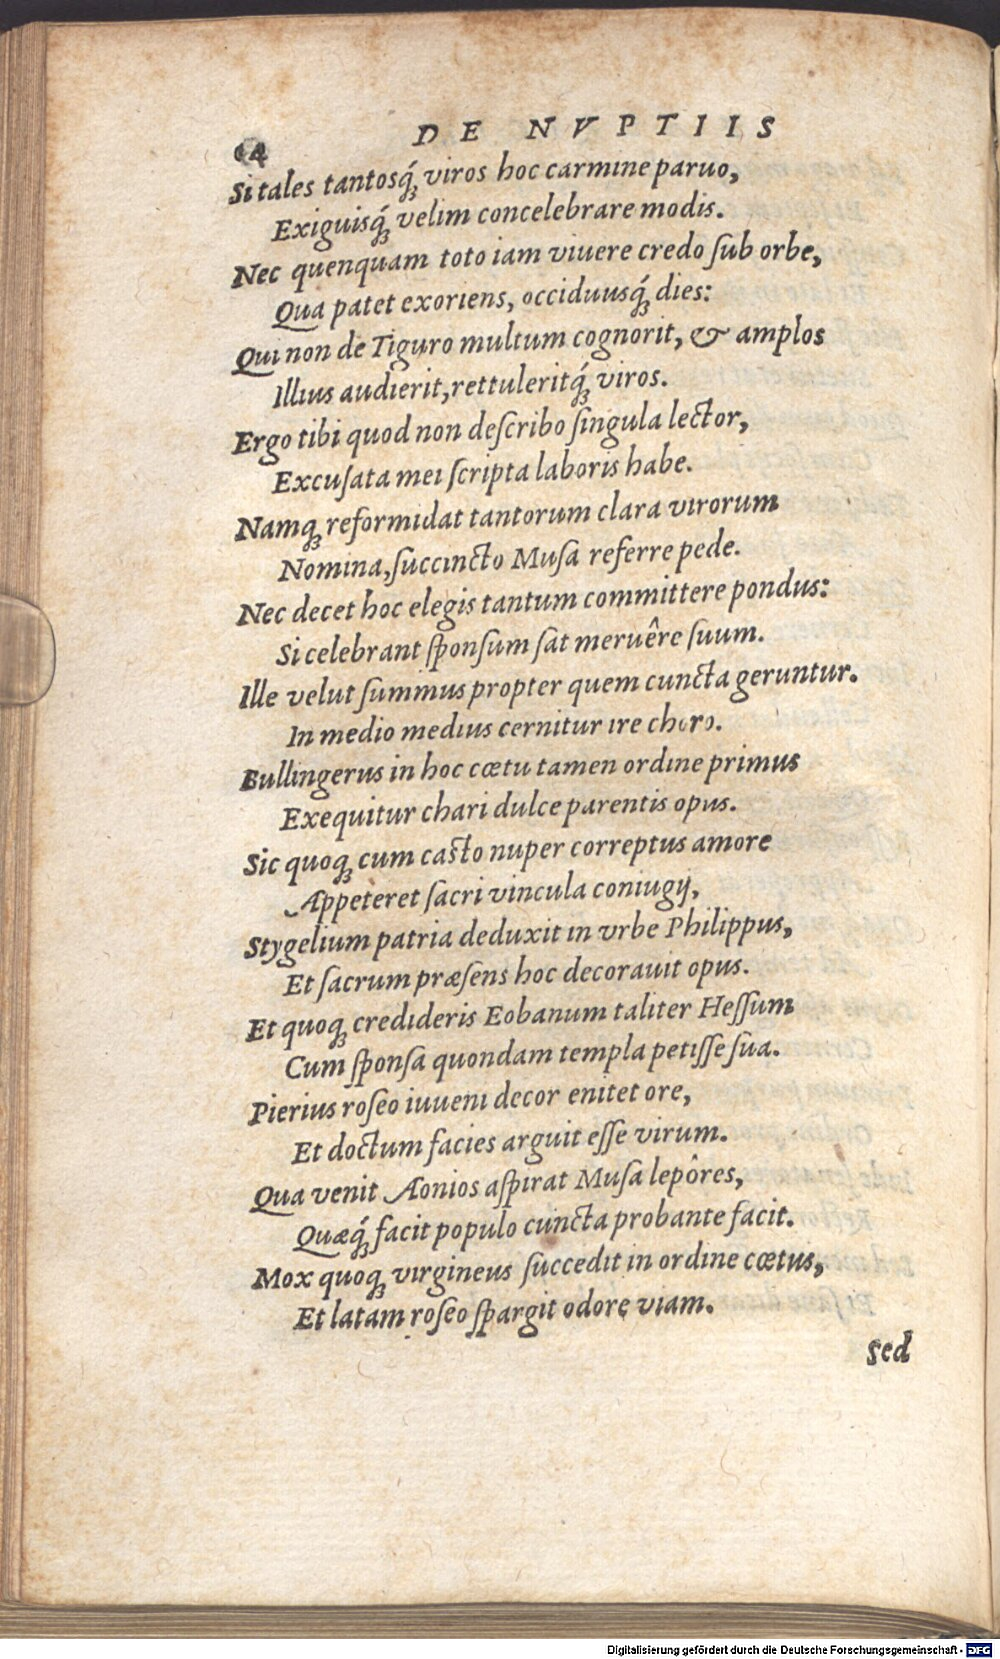 64
DE NVPTIIS
Si tales tantosq́; viros hoc carmine paruo,
Exiguisq́; velim concelebrare modis.
Nec quenquam toto iam viuere credo ſub orbe,
Qua patet exoriens, occiduusq́; dies:
Qui non de Tiguro multum cognorit, & amplos
Illius audierit, rettuleritq́; viros.
Ergo tibi quod non deſcribo ſingula lector,
Excuſata mei ſcripta laboris habe.
Namq; reformidat tantorum clara virorum
Nomina, ſuccincto Muſa referre pede.
Nec decet hoc elegis tantum committere pondus:
Si celebrant ſponſum ſat meruêre ſuum.
Ille velut ſummus propter quem cuncta geruntur.
In medio medius cernitur ire choro.
Bullingerus in hoc cœtu tamen ordine primus
Exequitur chari dulce parentis opus.
Sic quoq; cum caſto nuper correptus amore
Appeteret ſacri vincula coniugij,
Stygelium patria deduxit in vrbe Philippus,
Et ſacrum præſens hoc decorauit opus.
Et quoq; credideris Eobanum taliter Heſſum
Cum ſponſa quondam templa petiſſe ſua.
Pierius roſeo iuueni decor enitet ore,
Et doctum facies arguit eſſe virum.
Qua venit Aonios aſpirat Muſa lepôres,
Quæq́; facit populo cuncta probante facit.
Mox quoq; virgineus ſuccedit in ordine cœtus,
Et latam roſeo ſpargit odore viam.
Sed
Digitalisierung gefördert durch die Deutsche Forschungsgemeinschaft - DFG